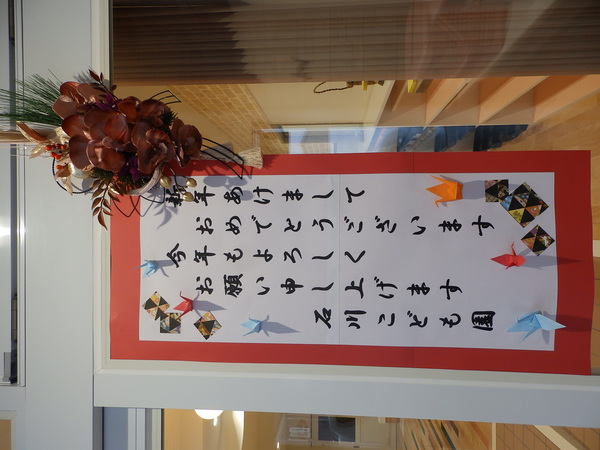 新年あけまして
おめでとうございます
今年もよろしく
お願い申し上げます
石川こども園